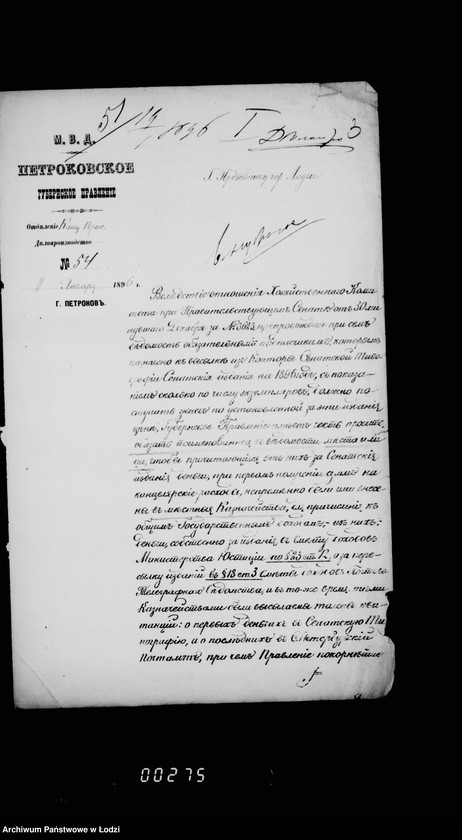 51/19 1896 I 3
М. В. Д.
ПЕТРОКОВСКОЕ
ГУБЕРНСКОЕ ПРАВЛЕНІЕ
Отдѣленіе
Дѣлопроизводство
№ 54
11 Января 1896 г.
Г. ПЕТРОКОВЪ.
Г. Президенту гор. Лодзи
Вслѣдствіе отношенія Хозяйственнаго Коми
тета при Правительствующемъ Сенатѣ отъ 30 ми
нувшаго Декабря за № препровождая при семъ
вѣдомость обязательнымъ подписчикамъ, которымъ
назначено къ высылкѣ изъ Конторы Сенатской Типо
графіи Сенатскія изданія на 1896 годъ, съ показа
ніемъ сколько по числу экземпляровъ, должно по
ступить денегъ по установленной за эти изданія
цѣнѣ, Губернское Правленіе имѣетъ честь просить
обязать поименованныя въ вѣдомости мѣста и ли
ца, чтобы причитающіяся отъ нихъ за Сенатскія
изданія деньги, при первомъ полученіи суммъ на
канцелярскіе расходы, непремѣнно были ими внесе
ны въ мѣстныя Казначейства, для причисленія къ
общимъ Государственнымъ доходамъ, изъ нихъ:
деньги собственно за изданія въ смѣту доходовъ
Министерства Юстиціи по § 23 ст. а за пере
сылку изданій въ § 18 ст 3 смѣты доходовъ Почтово
Телеграфнаго Вѣдомства, и въ то-же время тѣми
Казначействами были высылаемы талоны къ кви
танціи: о первыхъ деньгахъ въ Сенатскую Ти
пографію, а о послѣднихъ въ С.Петербургскій
Почтамтъ, при чемъ Правленіе покорнѣйше
00275
Archiwum Państwowe w Łodzi